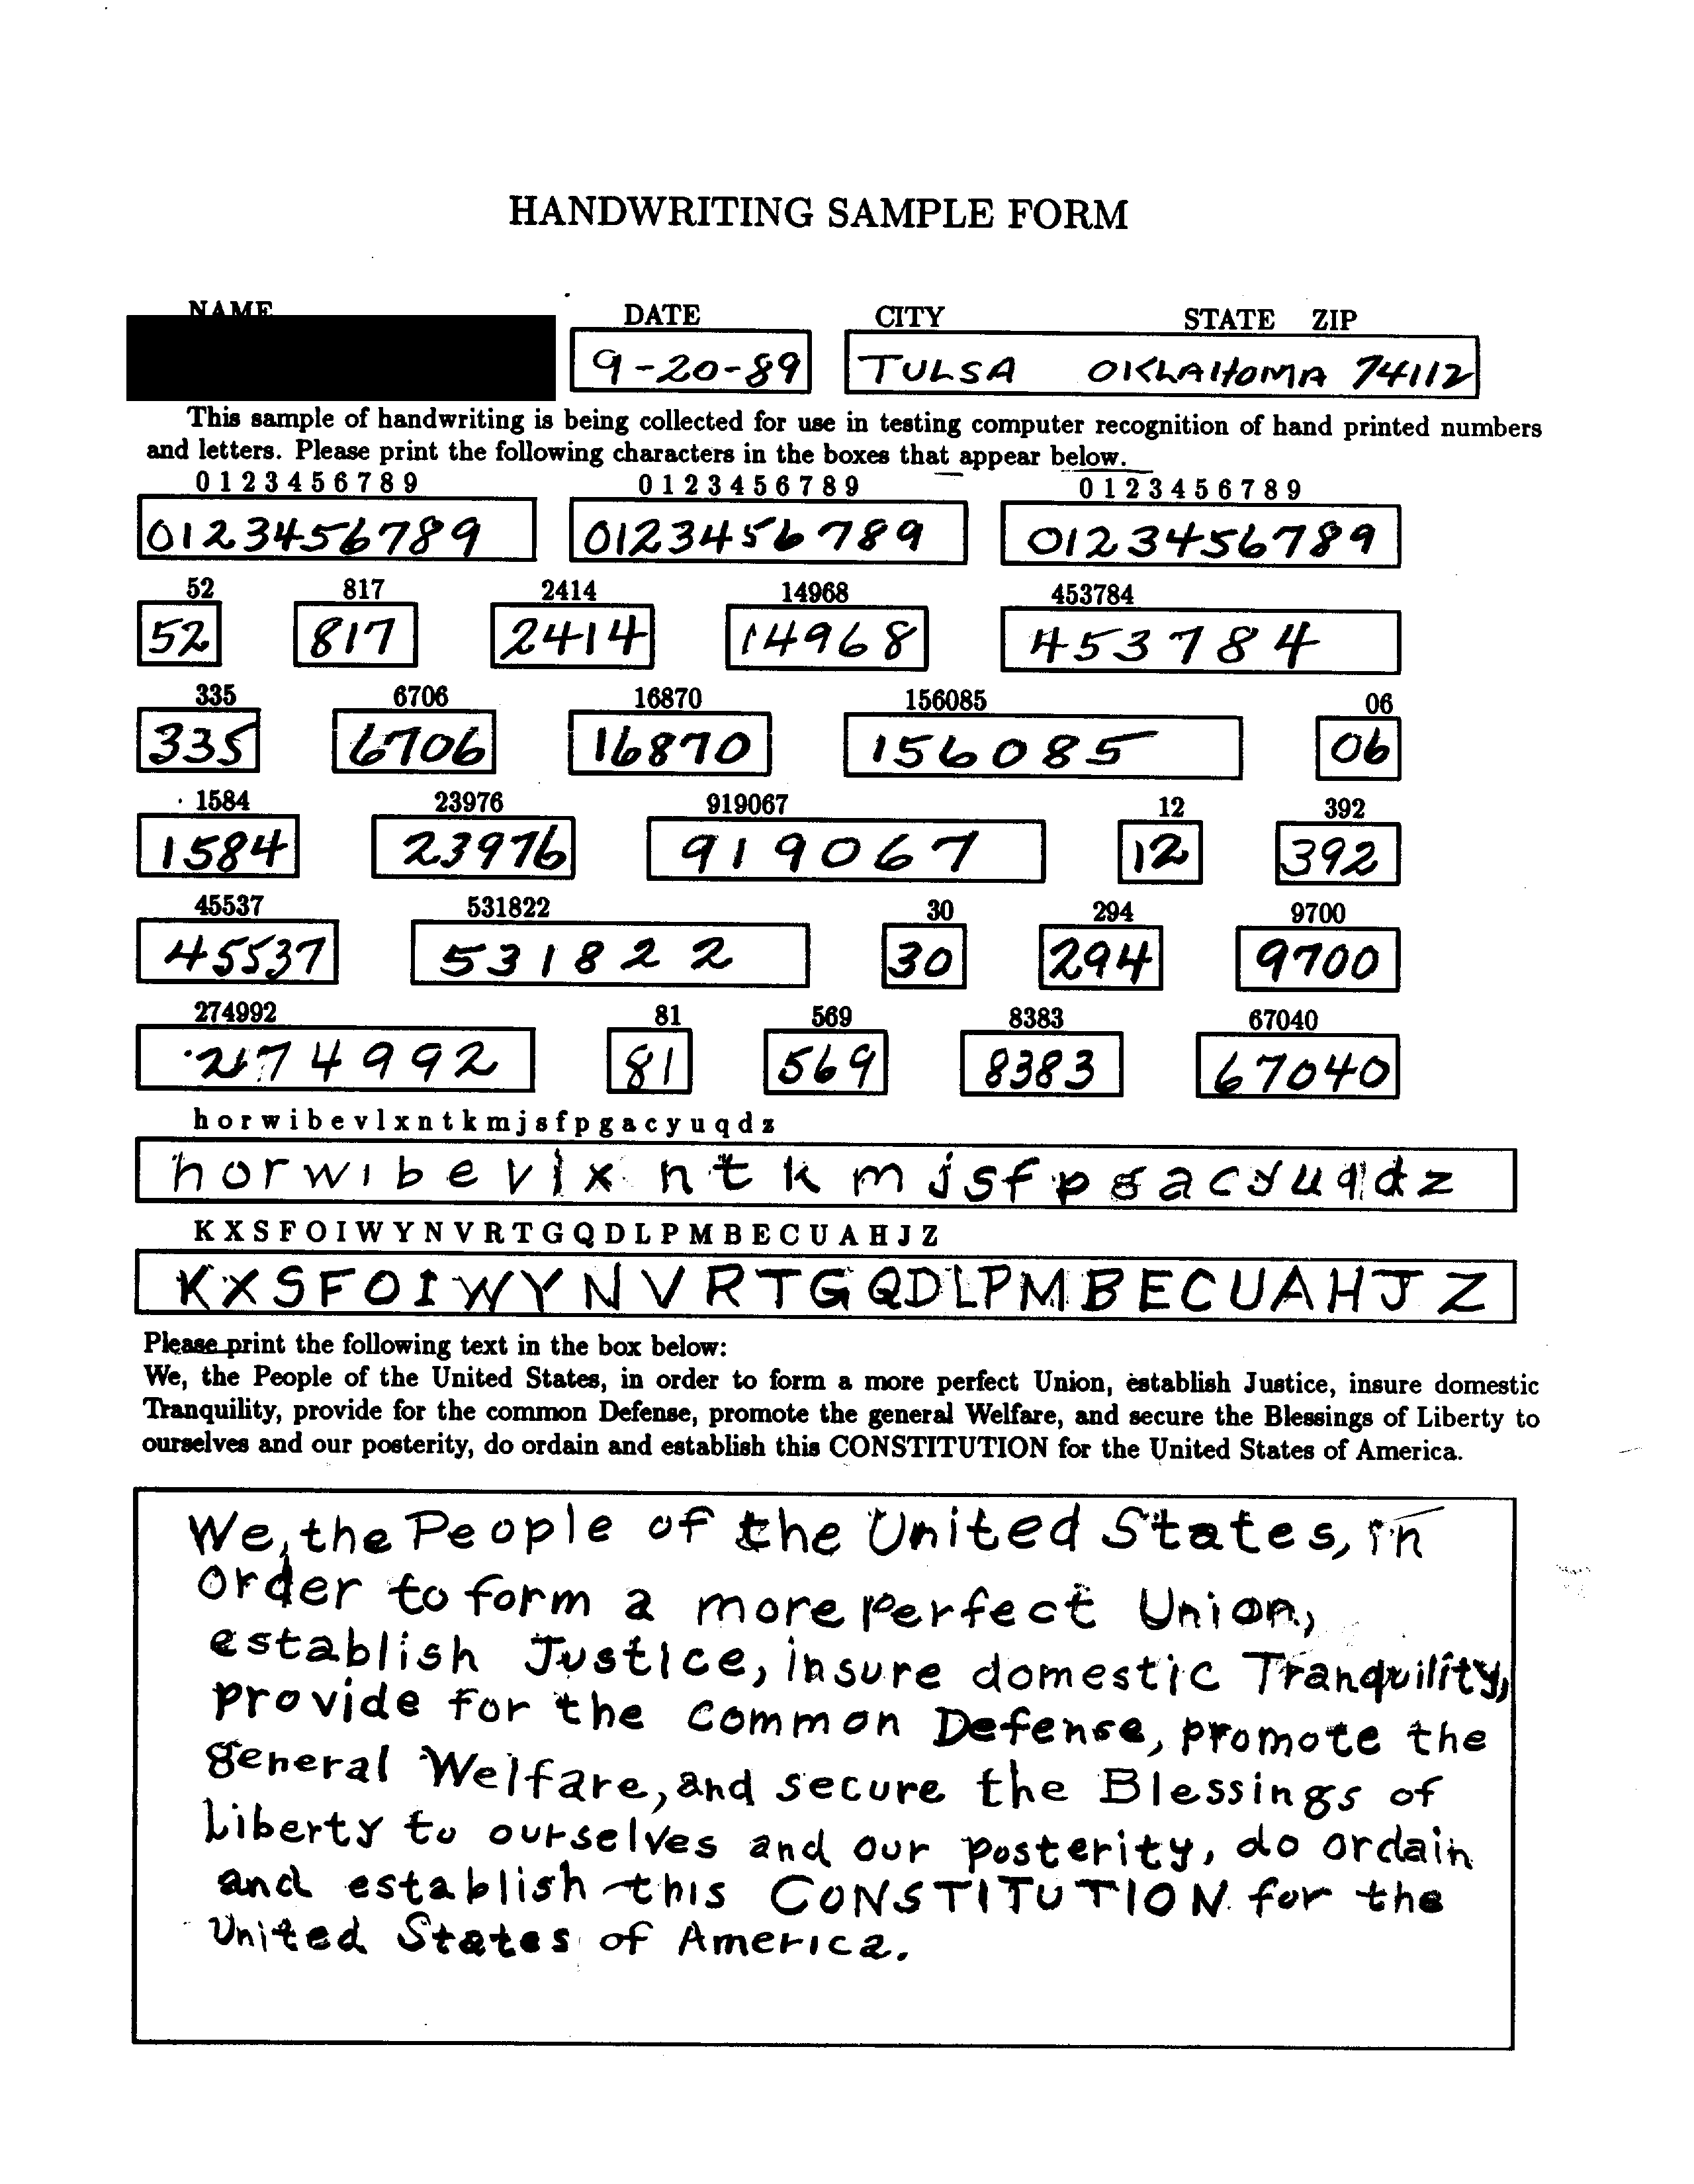 HANDWRITING SAMPLE FORM
NAME DATE CITY STATE ZIP
9-20-89 TULSA OKLAHOMA 74112
This sample of handwriting is being collected for use in testing computer recognition of hand printed numbers
and letters. Please print the following characters in the boxes that appear below.
0 1 2 3 4 5 6 7 8 9 0 1 2 3 4 5 6 7 8 9 0 1 2 3 4 5 6 7 8 9
0123456789 0123456789 0123456789
52 817 2414 14968 453784
52 817 2414 14968 453784
335 6706 16870 156085 06
335 6706 16870 156085 06
1584 23976 919067 12 392
1584 23976 919067 12 392
45537 531822 30 294 9700
45537 531822 30 294 9700
274992 81 569 8383 67040
274992 81 569 8383 67040
h o r w i b e v l x n t k m j s f p g a c y u q d z
h o r w i b e v l x n t k m j s f p g a c y u q d z
K X S F O I W Y N V R T G Q D L P M B E C U A H J Z
K X S F O I W Y N V R T G Q D L P M B E C U A H J Z
Please print the following text in the box below:
We, the People of the United States, in order to form a more perfect Union, establish Justice, insure domestic
Tranquility, provide for the common Defense, promote the general Welfare, and secure the Blessings of Liberty to
ourselves and our posterity, do ordain and establish this CONSTITUTION for the United States of America.
We, the People of the United States, in
order to form a more perfect Union,
establish Justice, insure domestic Tranquility,
provide for the common Defense, promote the
general Welfare, and secure the Blessings of
Liberty to ourselves and our posterity, do ordain
and establish this CONSTITUTION for the
United States of America.